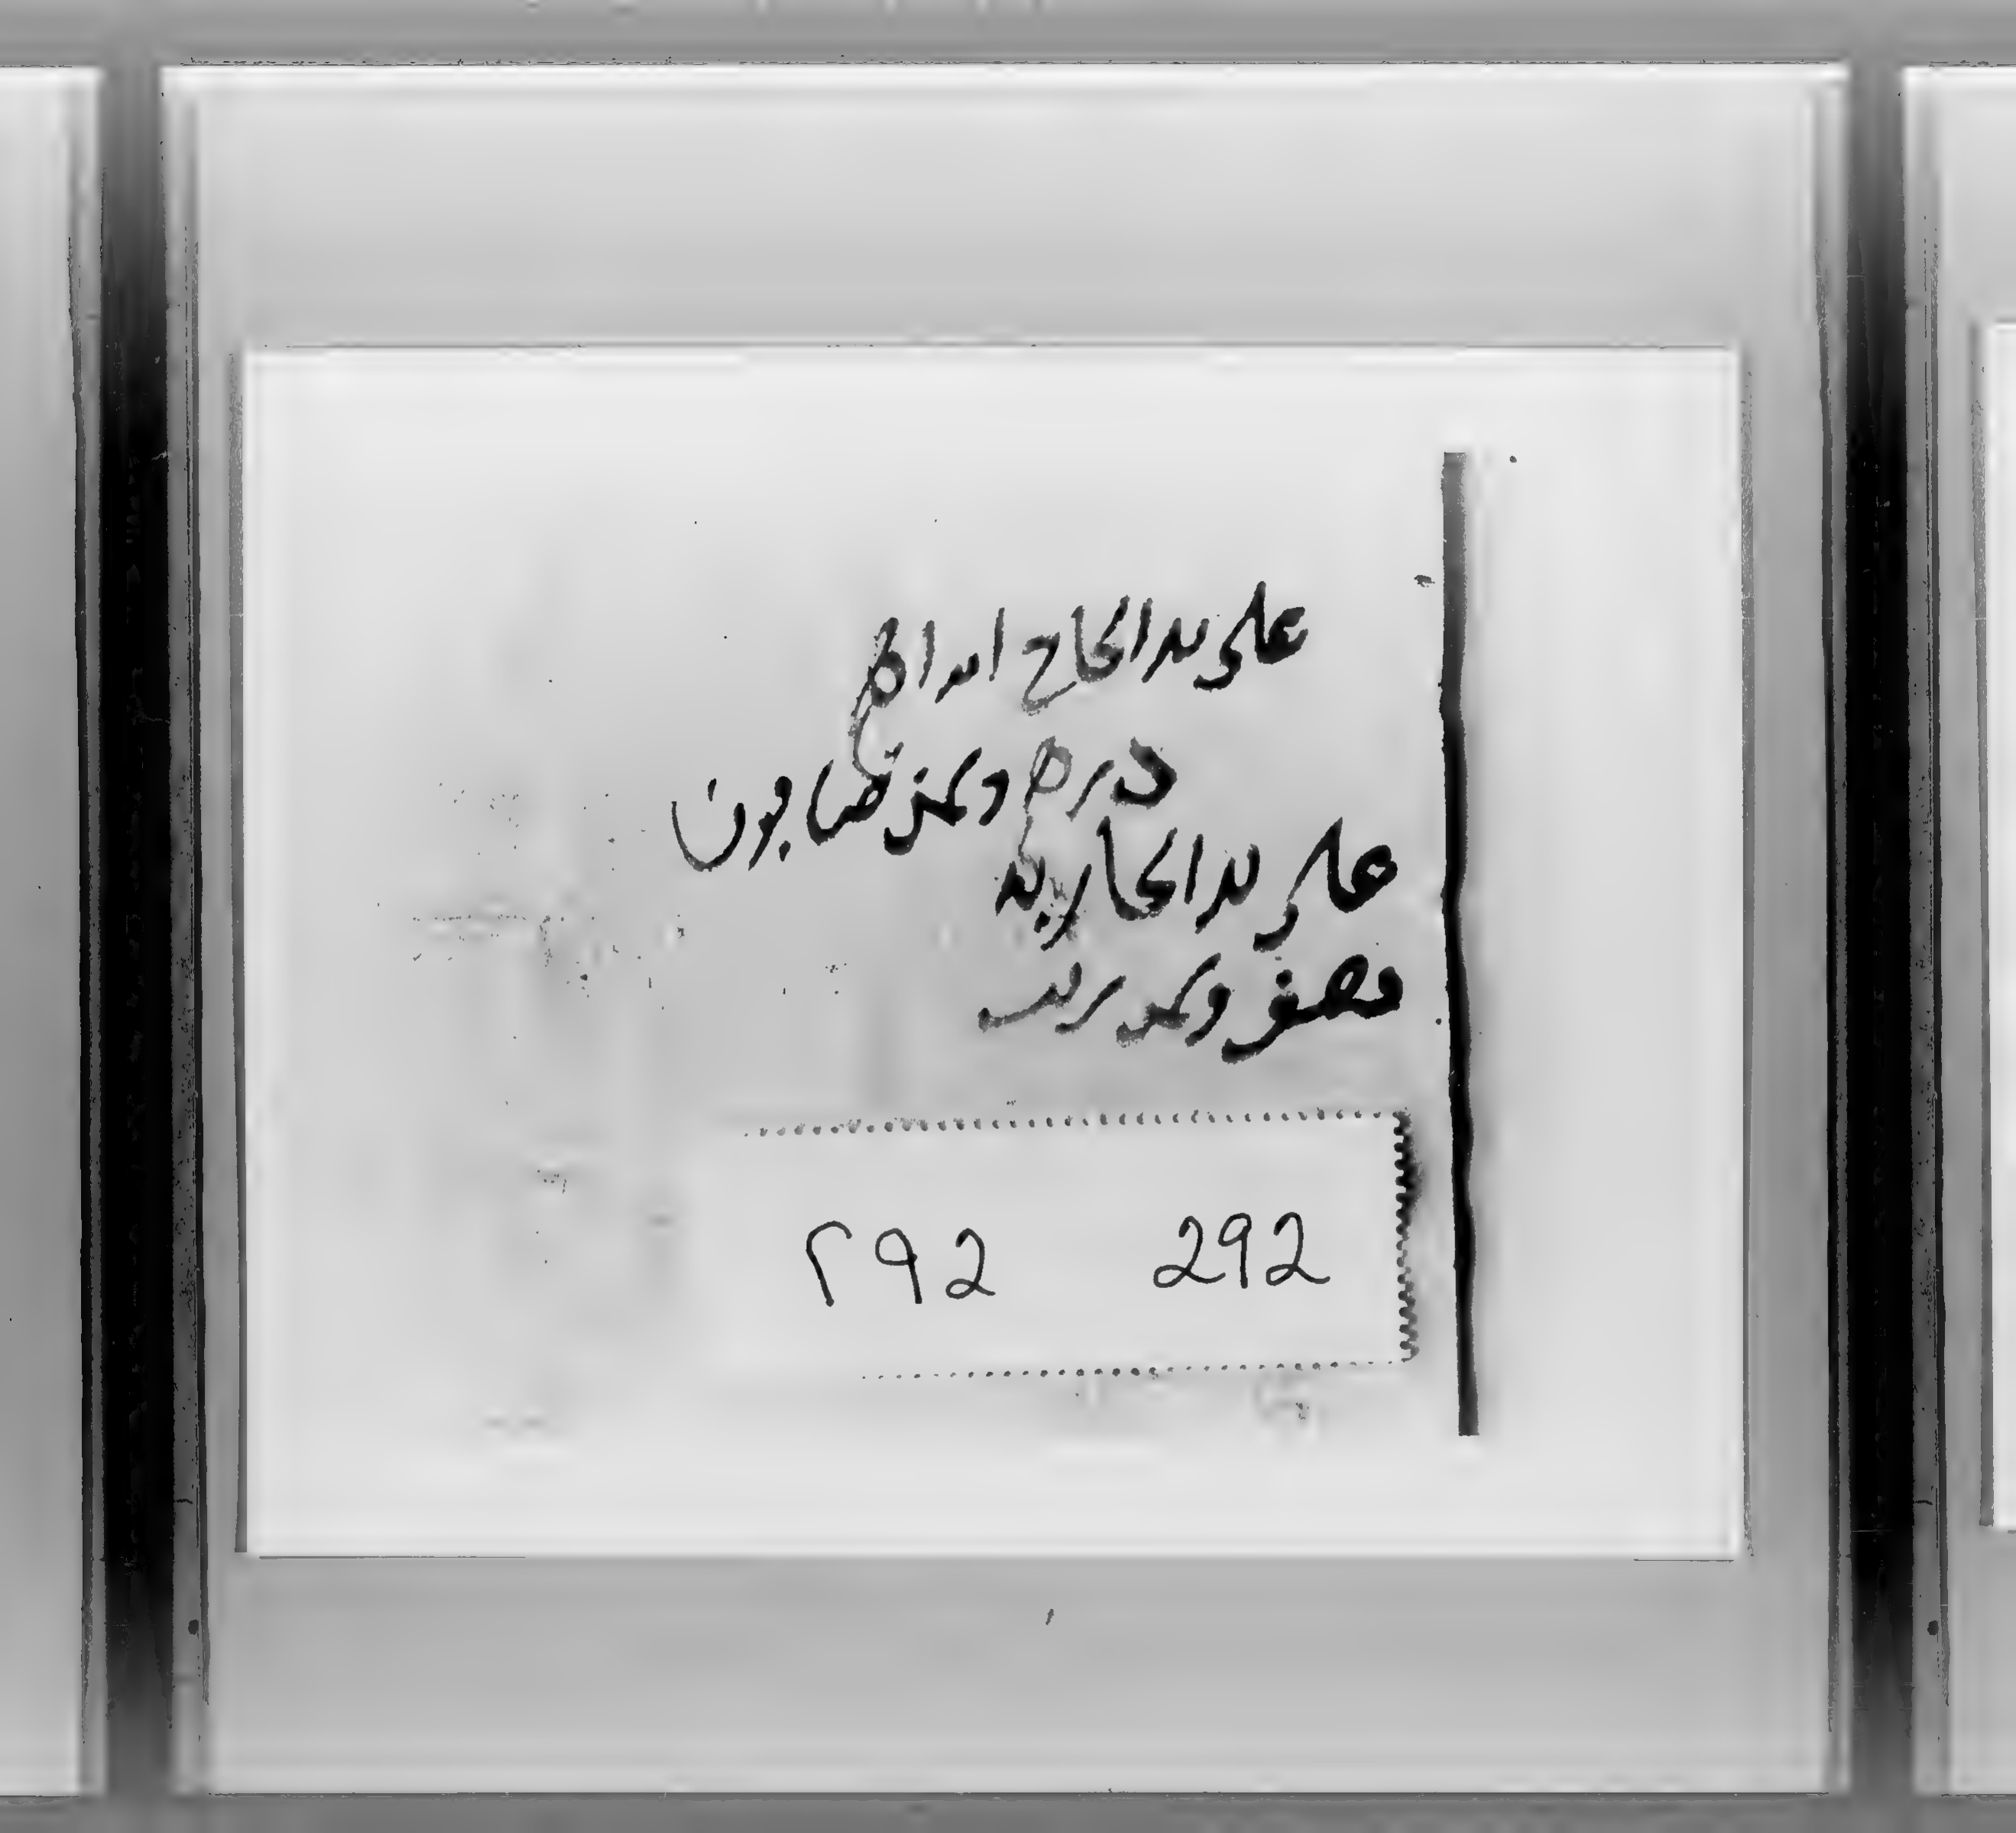 على يد الحاج ابراهيم
درهم وثمن صابون
على يد الجاريه
نصف وثمن زيت
٢٩2 292